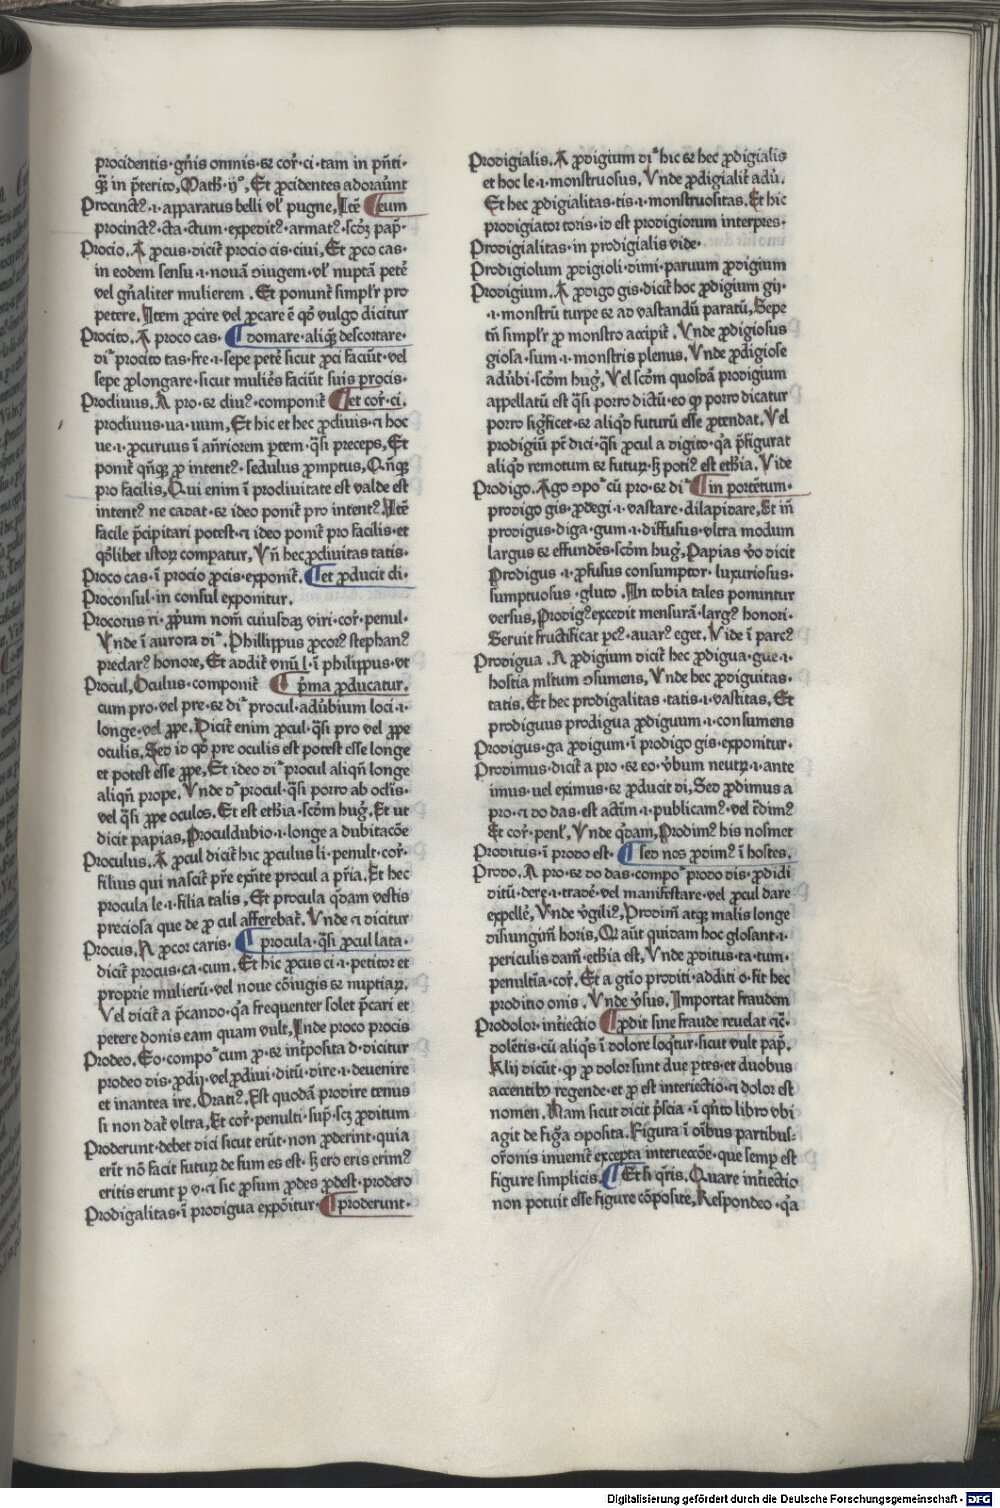 procidentis·gn̄is omnis·⁊ cor̄·ci·tam in p̄nti-
q̄ꝫ in p̄terito, Math·ijº, Et ꝓcidentes adoraūnt
Procinctꝰ·i·apparatus belli vl̓ pugne, Itē ¶eum
procinctꝰ·cta·ctum·expeditꝰ·armatꝰ·scd̓ꝫ pap̄·
Procio. A ꝓcus·dicit̄ procio cis·ciui, Et ꝓco cas·
in eodem sensu·i·nouā ↄiugem·vl̓ nuptā petē
vel gn̄aliter mulierem. Et ponunt̄ simpl̓r pro
petere. Item ꝓcire vel ꝓcare ē qd̓ vulgo dicitur
Procito. A proco cas· ¶domare·aliq̄ꝫ descortare·
di͛ procito tas·fre·i·sepe petē sicut ꝓci faciūt·vel
sepe ꝓlongare·sicut muliēs faciūt suis procis·
Procliuus. A pro·⁊ cliuꝰ·componit̄ ¶et cor̄·ci·
procliuus·ua·uum, Et hic et hec ꝓcliuis·⁊ hoc
ue·i·ꝓcuruus ī an̄riorem ꝑtem·q̄si preceps, Et
ponit̄ qn̄qꝫ ꝓ intentꝰ·sedulus ꝓmptus, Qn̄qꝫ
pro facilis, Qui enim ī procliuitate est valde est
intentꝰ ne cadat·⁊ ideo ponit̄ pro intentꝰ. Itē
facile p̄cipitari potest·⁊ ideo ponit̄ pro facilis·et
qd̓libet istoꝝ compatur, Vn̄ hec ꝓcliuitas tatis·
Proco cas·ī procio ꝓcis·exponit̄. ¶et ꝓducit ci·
Proconsul·in consul exponitur.
Procorus ri·ꝓpium nom̄ cuiusdaꝫ viri·cor̄·penul·
Vnde ī aurora di͛. Phillippus ꝓcorꝰ stephanꝰ
predarꝰ honore, Et addit̄ vnū l·ī philippus·vt
Procul, Oculus·componit̄ ¶p̄ma ꝓducatur.
cum pro·vel pre·⁊ di͛ procul·adūbium loci·i·
longe·vel ꝓpe. Dicit̄ enim ꝓcul·q̄si pro vel ꝓpe
oculis, Sed id qd̓ pre oculis est potest esse longe
et potest esse ꝓpe, Et ideo di͛ procul aliqn̄ longe
aliqn̄ prope. Vnde d͛ procul·q̄si porro ab oclis·
vel q̄si ꝓpe oculos. Et est ethīa·scd̓m hug̓. Et ut
dicit papias, Proculdubio·i·longe a dubitacōe
Proculus. A ꝓcul dicit̄ hic ꝓculus li·penult·cor̄·
filius qui nascit̄ pr̄e exn̄te procul a pr̄ia. Et hec
procula le·i·filia talis, Et procula qd̓am vestis
preciosa que de ꝓ cul afferebat̄. Vnde ⁊ dicitur
Procus. A ꝓcor caris· ¶procula·q̄si ꝓcul lata·
dicit̄ procus·ca·cum. Et hic ꝓcus ci·i·petitor et
proprie mulierū·vel noue cōiugis ⁊ nuptiaꝝ.
Vel dicit̄ a p̄cando·q̓a frequenter solet p̄cari et
petere donis eam quam vult, Inde proco procis
Prodeo. Eo·compo͛ cum ꝓ·⁊ int̄posita d·dicitur
prodeo dis·ꝓdij·vel ꝓdiui·ditū·dire·i·deuenire
et inantea ire. Oratiꝰ. Est quodā prodire tenus
si non dat̄ vltra, Et cor̄·penulti·sup̄·scꝫ ꝓditum
Proderunt·debet dici sicut erūt·non ꝓderint·quia
erūt nō facit futuꝝ de sum es est·sꝫ ero eris erimꝰ
eritis erunt ꝑ v·⁊ sic ꝓsum ꝓdes ꝓdest·prodero
Prodigalitas·ī prodigua expōitur· ¶proderunt·
Prodigialis. A ꝓdigium di͛ hic ⁊ hec ꝓdigialis
et hoc le·i·monstruosus. Vnde ꝓdigialit̄ adū.
Et hec ꝓdigialitas·tis·i·monstruositas. Et hic
prodigiator toris·id est prodigiorum interpres·
Prodigialitas·in prodigialis vide·
Prodigiolum ꝓdigioli·dimi·paruum ꝓdigium
Prodigium. A ꝓdigo gis·dicit̄ hoc ꝓdigium gij·
·i·monstrū turpe ⁊ ad vastandū paratū, Sepe
tn̄ simpl̓r ꝓ monstro accipit̄. Vnde ꝓdigiosus
giosa·sum·i·monstris plenus, Vnde ꝓdigiose
adūbi·scd̓m hug̓, Vel scd̓m quosdā prodigium
appellatū est q̄si porro dictū·eo qꝓ porro dicatur
porro sig̓ficet·⁊ aliqd̓ futurū esse ꝓtendat. Vel
prodigiū pt̄ dici·q̄si ꝓcul a digito·q̓a p̄figurat
aliqd̓ remotum ⁊ futuꝝ·sꝫ potiꝰ est ethīa. Vide
Prodigo. Ago ↄpo͛ cū pro·⁊ di͛ ¶in portētum·
prodigo gis·ꝓdegi·i·vastare·dilapidare, Et in̄
prodigus·diga·gum·i·diffusus·vltra modum
largus ⁊ effundēs·scd̓m hug̓, Papias v̓o dicit
Prodigus·i·ꝓfusus consumptor·luxuriosus·
sumptuosus·gluto. In tobia tales ponuntur
versus, Prodigꝰ excedit mensurā·largꝰ honori·
Seruit fructificat pcꝰ·auarꝰ eget. Vide ī parcꝰ
Prodigua. A ꝓdigium dicit̄ hec ꝓdigua·gue·i·
hostia ml̓tum ↄsumens, Vnde hec ꝓdiguitas·
tatis. Et hec prodigalitas·tatis·i·vastitas, Et
prodiguus prodigua ꝓdiguum·i·consumens
Prodigus·ga ꝓdigum·ī prodigo gis·exponitur·
Prodimus·dicit̄ a pro·⁊ eo·v̓bum neutꝝ·i·ante
imus·vel eximus·⁊ ꝓducit di, Sed ꝓdimus a
pro·⁊ do das·est actīm·i·publicamꝰ·vel t̄dimꝰ
Et cor̄·penl̓, Vnde qd̓am, Prodimꝰ his nosmet
Proditus·ī prodo est· ¶sed nos ꝓdimꝰ ī hostes.
Prodo. A pro·⁊ do das·compo͛ prodo dis·ꝓdidi
ditū·dere·i·tradē·vel manifestare·vel ꝓcul dare
expellē, Vnde v̓giliꝰ, Prodim̄ atqꝫ malis longe
disiungim̄ horis, Qd̓ aūt quidam hoc glosant·i·
periculis dam̄·ethīa est, Vnde ꝓditus·ta·tum·
penultīa·cor̄. Et a gtīo proditi·additi o·fit hec
proditio onis. Vnde v̓sus. Importat fraudem
Prodolor·int̄iectio ¶ꝓdit sine fraude reuelat ⁊c̄·
dolētis·cū aliq̓s ī dolore loqt̄ur·sicut vult pap̄.
Alij dicūt·qꝓ ꝓ dolor sunt due ꝑtes·et duobus
accentibꝫ regende·et ꝓ est interiectio·⁊ dolor est
nomen. Nam sicut dicit p̄scia·ī qn̄to libro vbi
agit de fig̓a ↄposita. Figura ī oībus partibus-
or̄onis inuenit̄ excepta interieccōe·que semꝑ est
figure simplicis. ¶Et si q̄ris. Quare int̄iectio
non potuit esse figure cōposite, Respondeo·q̓a
Digitalisierung gefördert durch die Deutsche Forschungsgemeinschaft - DFG